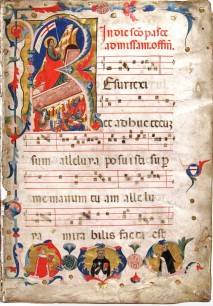 In die sco pasce
ad missam. offm
R esurexi
et ad huc tecum
sum alleluya posu isti sup
me manum tu am alle lu
ya mira bilis facta est